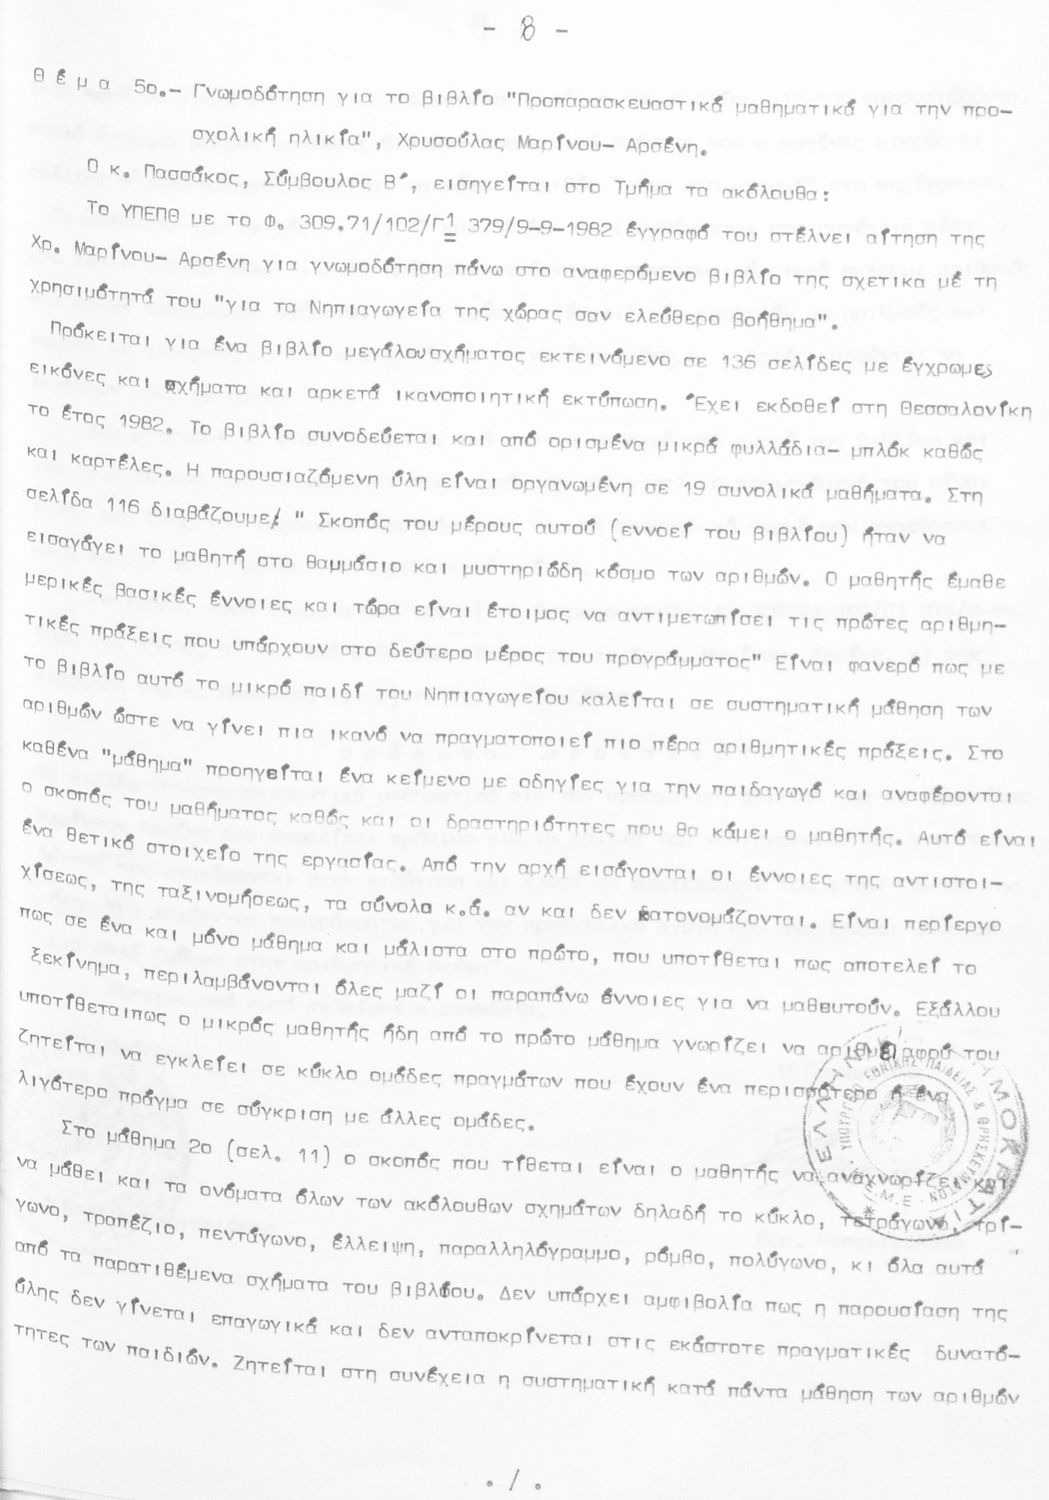 - 8 -
Θ έ μ α 5ο.- Γνωμοδότηση για το βιβλίο "Προπαρασκευαστικά μαθηματικά για την προ-
σχολική ηλικία", Χρυσούλας Μαρίνου- Αρσένη.
Ο κ. Πασσάκος, Σύμβουλος Β΄, εισηγείται στο Τμήμα τα ακόλουθα:
Το ΥΠΕΠΘ με το Φ. 309.71/102/Γ1 379/9-9-1982 έγγραφό του στέλνει αίτηση της
Χρ. Μαρίνου- Αρσένη για γνωμοδότηση πάνω στο αναφερόμενο βιβλίο της σχετικα μέ τη
χρησιμότητά του "για τα Νηπιαγωγεία της χώρας σαν ελεύθερο βοήθημα".
Πρόκειται για ένα βιβλίο μεγάλου σχήματος εκτεινόμενο σε 136 σελίδες με έγχρωμες
εικόνες και σχήματα και αρκετά ικανοποιητική εκτύπωση. Έχει εκδοθεί στη Θεσσαλονίκη
το έτος 1982. Το βιβλίο συνοδεύεται και από ορισμένα μικρά φυλλάδια- μπλόκ καθώς
και καρτέλες. Η παρουσιαζόμενη ύλη είναι οργανωμένη σε 19 συνολικά μαθήματα. Στη
σελίδα 116 διαβάζουμε: " Σκοπός του μέρους αυτού (εννοεί του βιβλίου) ήταν να
εισαγάγει το μαθητή στο θαμμάσιο και μυστηριώδη κόσμο των αριθμών. Ο μαθητής έμαθε
μερικές βασικές έννοιες και τώρα είναι έτοιμος να αντιμετωπίσει τις πρώτες αριθμη-
τικές πράξεις που υπάρχουν στο δεύτερο μέρος του προγράμματος" Είναι φανερό πως με
το βιβλίο αυτό το μικρό παιδί του Νηπιαγωγείου καλείται σε συστηματική μάθηση των
αριθμών ώστε να γίνει πια ικανό να πραγματοποιεί πιο πέρα αριθμητικές πράξεις. Στο
καθένα "μάθημα" προηγείται ένα κείμενο με οδηγίες για την παιδαγωγό και αναφέρονται
ο σκοπός του μαθήματος καθώς και οι δραστηριότητες που θα κάμει ο μαθητής. Αυτό είναι
ένα θετικό στοιχείο της εργασίας. Από την αρχή εισάγονται οι έννοιες της αντιστοι-
χίσεως, της ταξινομήσεως, τα σύνολα κ.ά. αν και δεν κατονομάζονται. Είναι περίεργο
πως σε ένα και μόνο μάθημα και μάλιστα στο πρώτο, που υποτίθεται πως αποτελεί το
ξεκίνημα, περιλαμβάνονται όλες μαζί οι παραπάνω έννοιες για να μαθευτούν. Εξάλλου
υποτίθεταιπως ο μικρός μαθητής ήδη από το πρώτο μάθημα γνωρίζει να αριθμεί αφού του
ζητείται να εγκλείει σε κύκλο ομάδες πραγμάτων που έχουν ένα περισσότερο ή ένα
λιγότερο πράγμα σε σύγκριση με άλλες ομάδες.
Στο μάθημα 2ο (σελ. 11) ο σκοπός που τίθεται είναι ο μαθητής να αναχνωρίζει και
να μάθει και τα ονόματα όλων των ακόλουθων σχημάτων δηλαδή το κύκλο, τετράγωνο, τρί-
γωνο, τραπέζιο, πεντάγωνο, έλλειψη, παραλληλόγραμμο, ρόμβο, πολύγωνο, κι όλα αυτά
από τα παρατιθέμενα σχήματα του βιβλίου. Δεν υπάρχει αμφιβολία πως η παρουσίαση της
ύλης δεν γίνεται επαγωγικά και δεν ανταποκρίνεται στις εκάστοτε πραγματικές δυνατό-
τητες των παιδιών. Ζητείται στη συνέχεια η συστηματική κατά πάντα μάθηση των αριθμών
./.
ΕΛΛΗΝΙΚΗ ΔΗΜΟΚΡΑΤΙΑ
ΥΠΟΥΡΓΕΙΟ ΕΘΝΙΚΗΣ ΠΑΙΔΕΙΑΣ & ΘΡΗΣΚΕΥΜΑΤΩΝ
Κ.Ε.Μ.Ε.